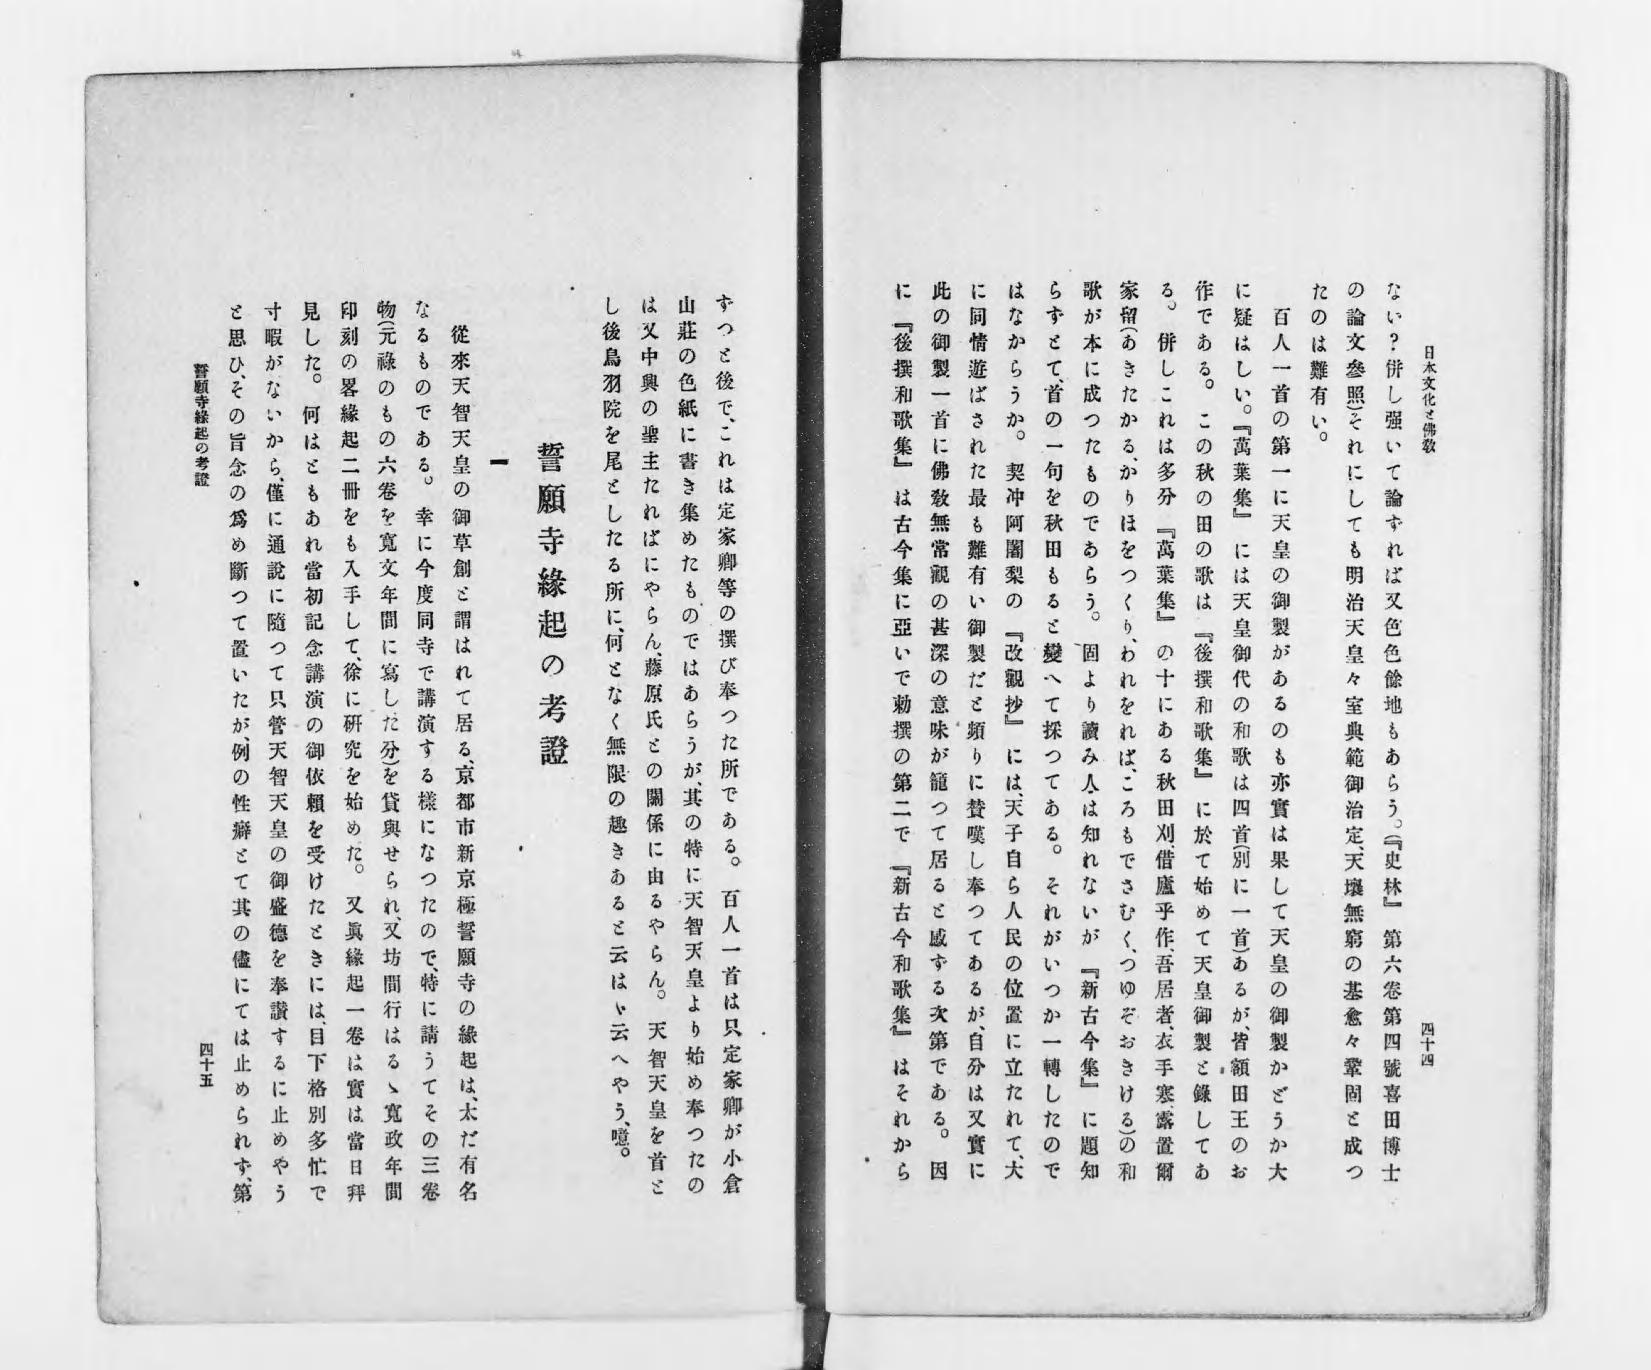 日本文化と佛敎
四十四
ない?併し强いて論ずれば又色色餘地もあらう。(『史林』第六卷第四號喜田博士
の論文參照)それにしても明治天皇々室典範御治定、天壤無窮の基愈々鞏固と成つ
たのは難有い。
百人一首の第一に天皇の御製があるのも亦實は果して天皇の御製かどうか大
に疑はしい。『萬葉集』には天皇御代の和歌は四首(別に一首)あるが、皆額田王のお
作である。この秋の田の歌は『後撰和歌集』に於て始めて天皇御製と錄してあ
る。併しこれは多分『萬葉集』の十にある秋田刈借廬乎作、吾居者、衣手寒、露置爾
家留(あきたかる、かりほをつくり、われをれば、ころもでさむく、つゆぞおきける)の和
歌が本に成つたものであらう。固より讀み人は知れないが『新古今集』に題知
らずとて、首の一句を秋田もると變へて採つてある。それがいつか一轉したので
はなからうか。契冲阿闍梨の『改觀抄』には、天子自ら人民の位置に立たれて、大
に同情遊ばされた最も難有い御製だと頻りに賛嘆し奉つてあるが、自分は又實に
此の御製一首に佛敎無常觀の甚深の意味が籠つて居ると感ずる次第である。因
に『後撰和歌集』は古今集に亞いで勅撰の第二で『新古今和歌集』はそれから
ずつと後で、これは定家卿等の撰び奉つた所である。百人一首は只定家卿が小倉
山莊の色紙に書き集めたものではあらうが、其の特に天智天皇より始め奉つたの
は又中興の聖主たればにやらん、藤原氏との關係に由るやらん。天智天皇を首と
し後鳥羽院を尾としたる所に、何となく無限の趣きあると云はゝ云へやう、噫。
誓願寺緣起の考證
一
從來天智天皇の御草創と謂はれて居る、京都市新京極誓願寺の緣起は、太だ有名
なるものである。幸に今度同寺で講演する樣になつたので、特に請うてその三卷
物(元祿のもの六卷を寬文年間に寫した分)を貸與せられ、又坊間行はるゝ寬政年間
印刻の畧緣起二冊をも入手して、徐に硏究を始めた。又眞緣起一卷は實は當日拜
見した。何はともあれ當初記念講演の御依賴を受けたときには、目下格別多忙で
寸暇がないから、僅に通說に隨つて只管天智天皇の御盛德を奉讃するに止めやう
と思ひ、その旨念の爲め斷つて置いたが、例の性癖とて其の儘にては止められず、第
誓願寺緣起の考證
四十五